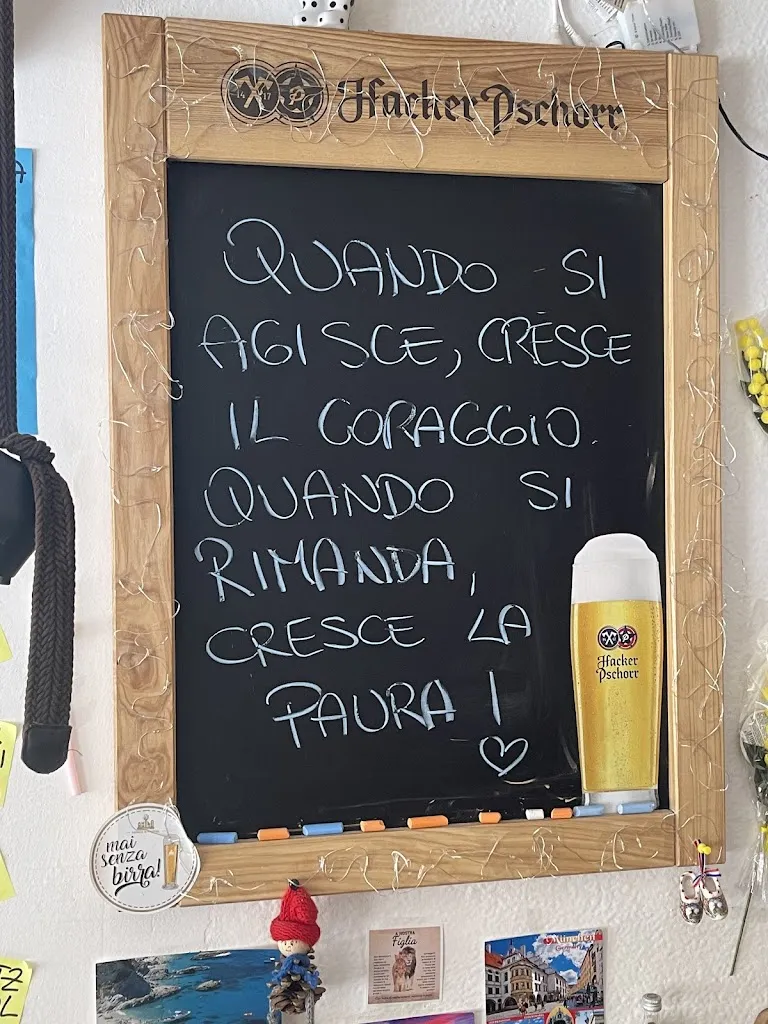 Hacker Pschorr
QUANDO SI
AGISCE, CRESCE
IL CORAGGIO.
QUANDO SI
RIMANDA,
CRESCE LA
PAURA!
Hacker
Pschorr
mai
senza
birra!
A NOSTRA
Figlia
München